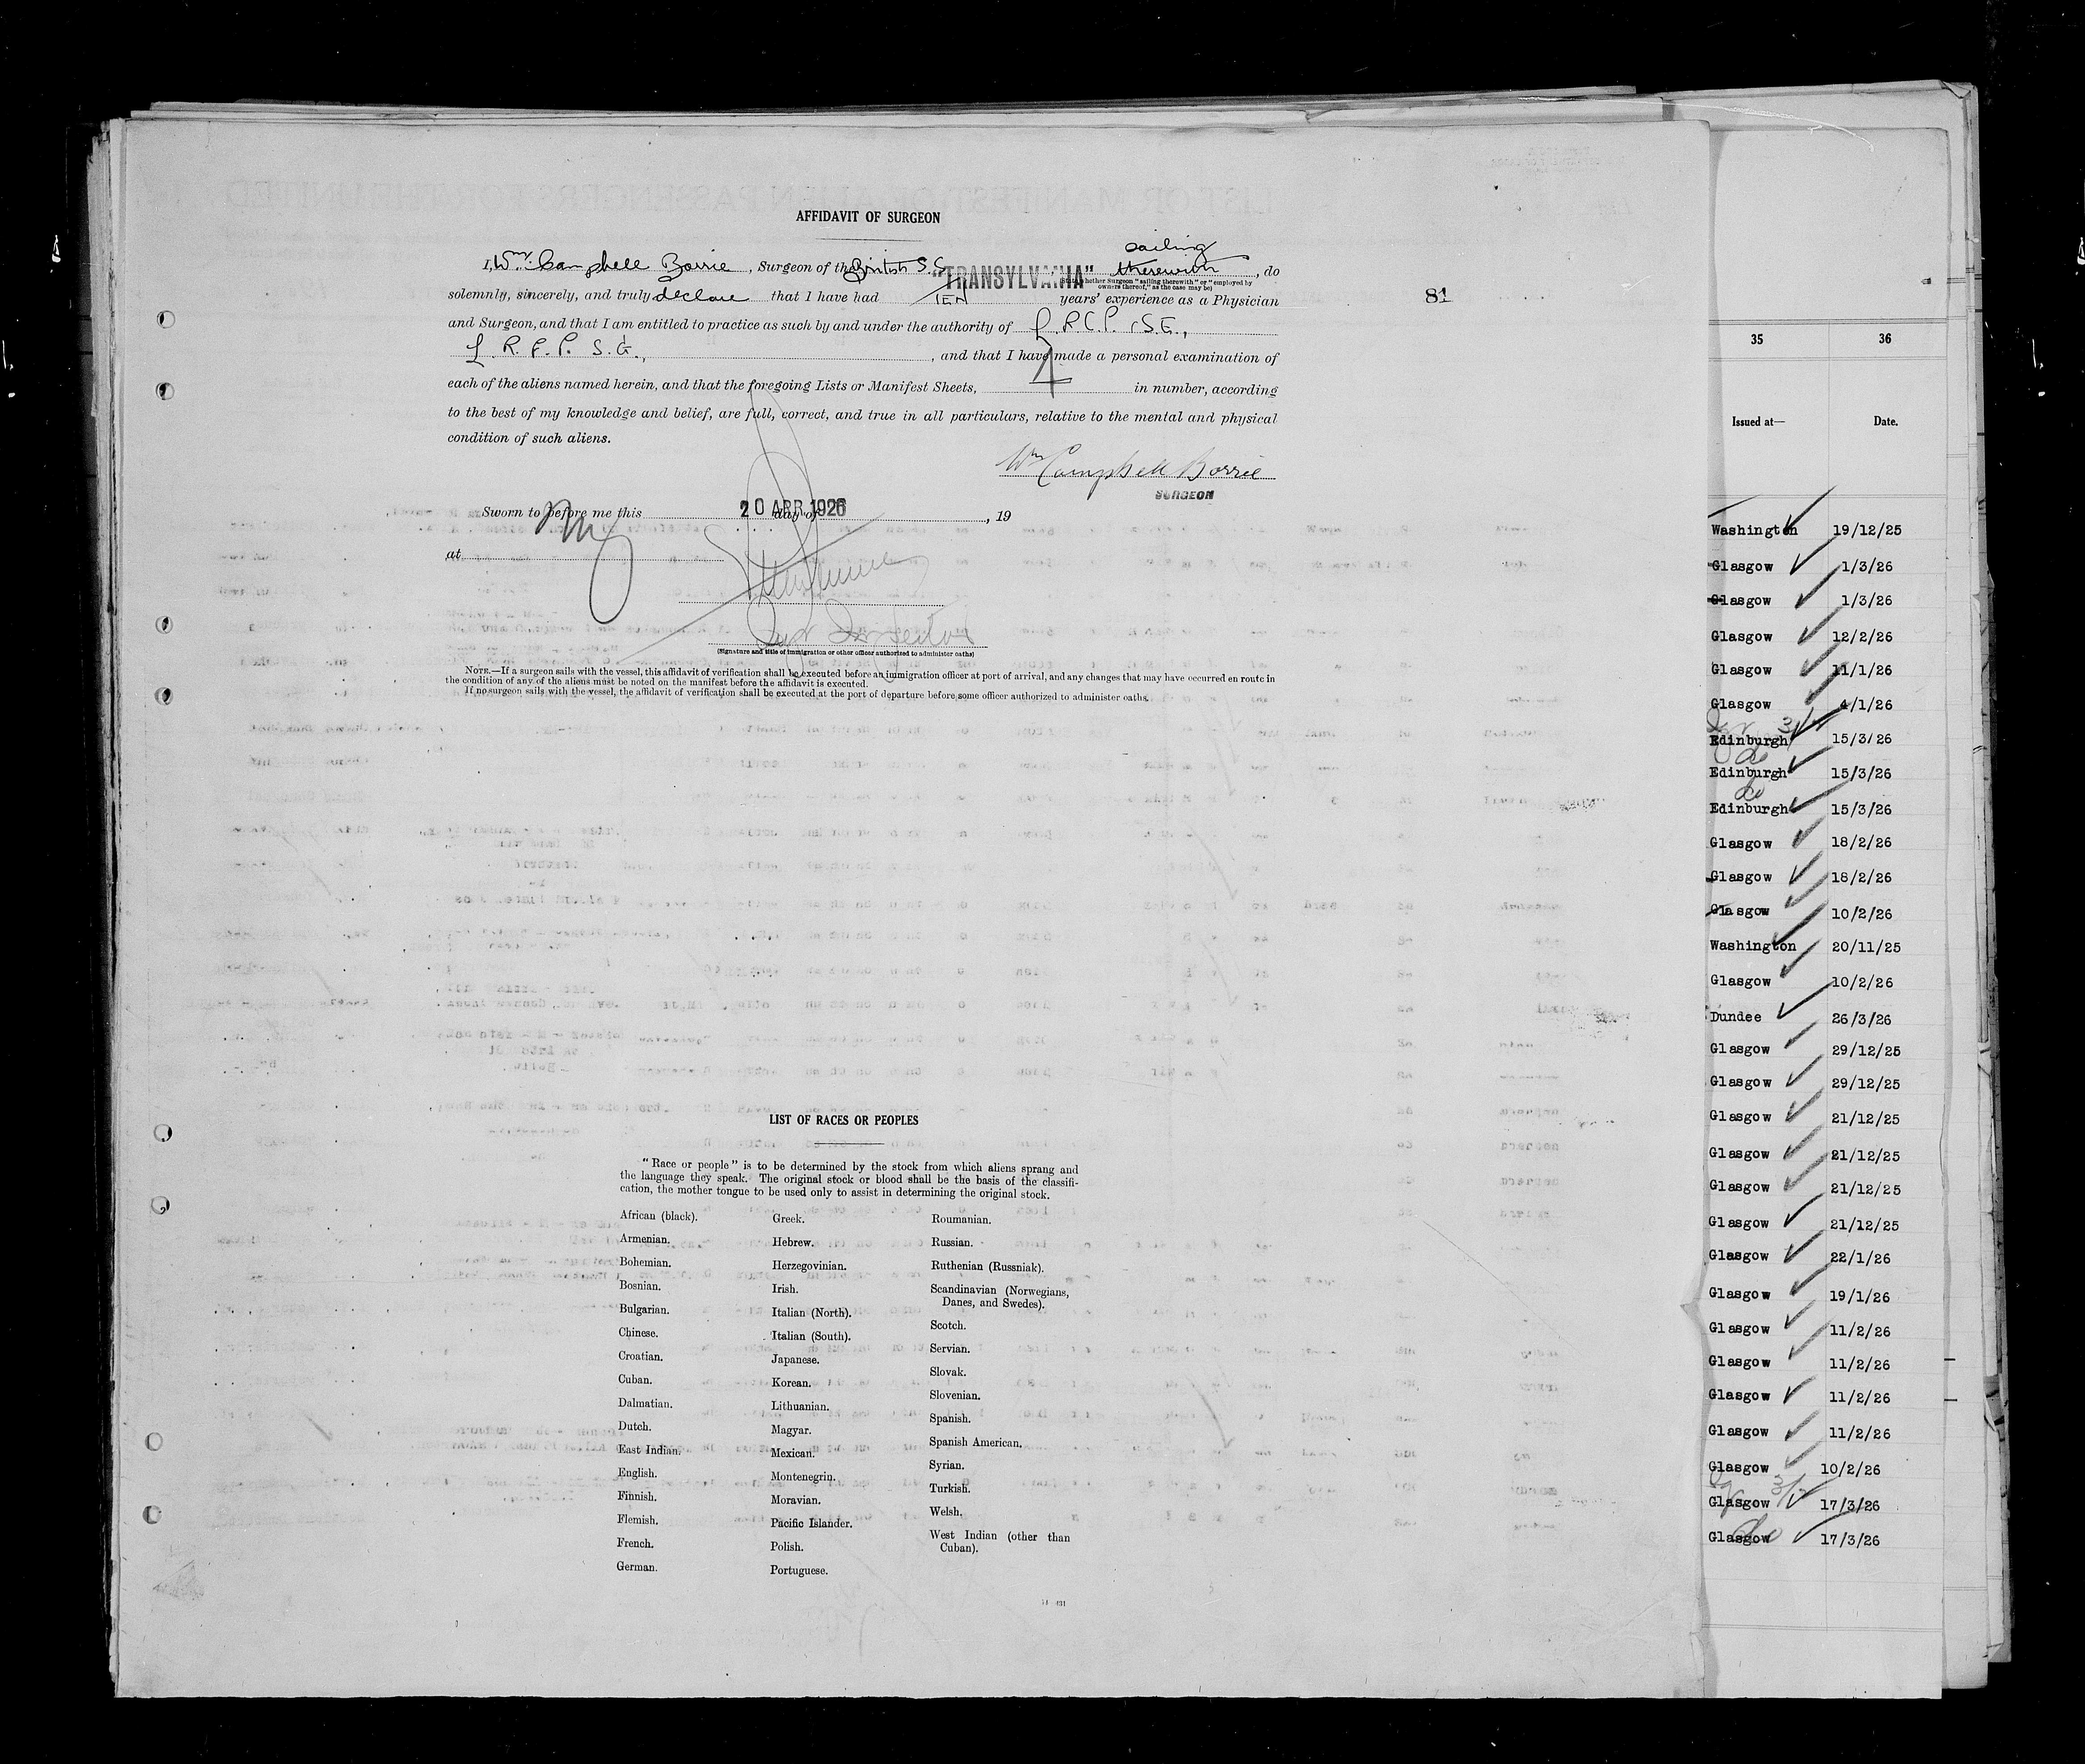 AFFIDAVIT OF SURGEON
I, Wm. Campbell Borrie, Surgeon of the British S.S. "TRANSYLVANIA" sailing therewith, do
(State whether Surgeon "sailing therewith" or "employed by owners thereof," as the case may be)
solemnly, sincerely, and truly declare that I have had TEN years' experience as a Physician
and Surgeon, and that I am entitled to practice as such by and under the authority of L.R.C.P. & S.E.,
L.R.F.P. S.G., and that I have made a personal examination of
each of the aliens named herein, and that the foregoing Lists or Manifest Sheets, in number, according
to the best of my knowledge and belief, are full, correct, and true in all particulars, relative to the mental and physical
condition of such aliens.
Wm Campbell Borrie
SURGEON
Sworn to before me this 20 APR 1926 day of , 19
at
(Signature and title of immigration or other officer authorized to administer oaths)
NOTE.—If a surgeon sails with the vessel, this affidavit of verification shall be executed before an immigration officer at port of arrival, and any changes that may have occurred en route in
the condition of any of the aliens must be noted on the manifest before the affidavit is executed.
If no surgeon sails with the vessel, the affidavit of verification shall be executed at the port of departure before some officer authorized to administer oaths.
81
LIST OF RACES OR PEOPLES
"Race or people" is to be determined by the stock from which aliens sprang and
the language they speak. The original stock or blood shall be the basis of the classifi-
cation, the mother tongue to be used only to assist in determining the original stock.
African (black).
Armenian.
Bohemian.
Bosnian.
Bulgarian.
Chinese.
Croatian.
Cuban.
Dalmatian.
Dutch.
East Indian.
English.
Finnish.
Flemish.
French.
German.
Greek.
Hebrew.
Herzegovinian.
Irish.
Italian (North).
Italian (South).
Japanese.
Korean.
Lithuanian.
Magyar.
Mexican.
Montenegrin.
Moravian.
Pacific Islander.
Polish.
Portuguese.
Roumanian.
Russian.
Ruthenian (Russniak).
Scandinavian (Norwegians,
Danes, and Swedes).
Scotch.
Servian.
Slovak.
Slovenian.
Spanish.
Spanish American.
Syrian.
Turkish.
Welsh.
West Indian (other than
Cuban).
35 36
Issued at— Date.
Washington 19/12/25
Glasgow 1/3/26
Glasgow 1/3/26
Glasgow 12/2/26
Glasgow 11/1/26
Glasgow 4/1/26
Edinburgh 15/3/26
Edinburgh 15/3/26
Edinburgh 15/3/26
Glasgow 18/2/26
Glasgow 18/2/26
Glasgow 10/2/26
Washington 20/11/25
Glasgow 10/2/26
Dundee 26/3/26
Glasgow 29/12/25
Glasgow 29/12/25
Glasgow 21/12/25
Glasgow 21/12/25
Glasgow 21/12/25
Glasgow 21/12/25
Glasgow 22/1/26
Glasgow 19/1/26
Glasgow 11/2/26
Glasgow 11/2/26
Glasgow 11/2/26
Glasgow 11/2/26
Glasgow 10/2/26
Glasgow 17/3/26
Glasgow 17/3/26